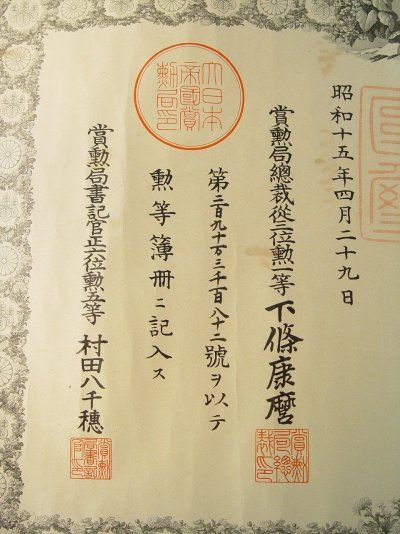 昭和十五年四月二十九日
賞勲局總裁從三位勲一等下條康麿
第二百九十万三千百八十二號ヲ以テ
勲等簿册ニ記入ス
賞勲局書記官正六位勲五等村田八千穂
大日本
帝國賞
勲局印
賞勲
局總
裁印